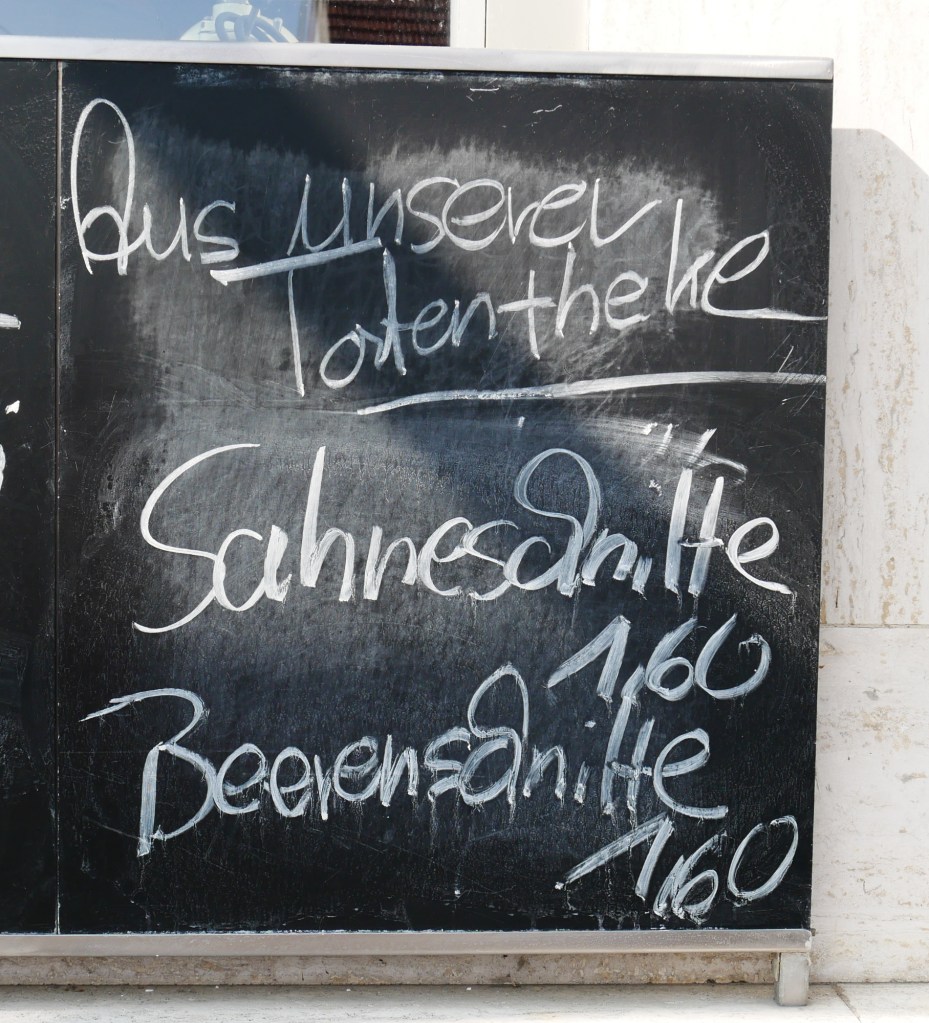 Aus unserer
Totentheke
Sahneschnitte
1,60
Beerenschnitte
1,60